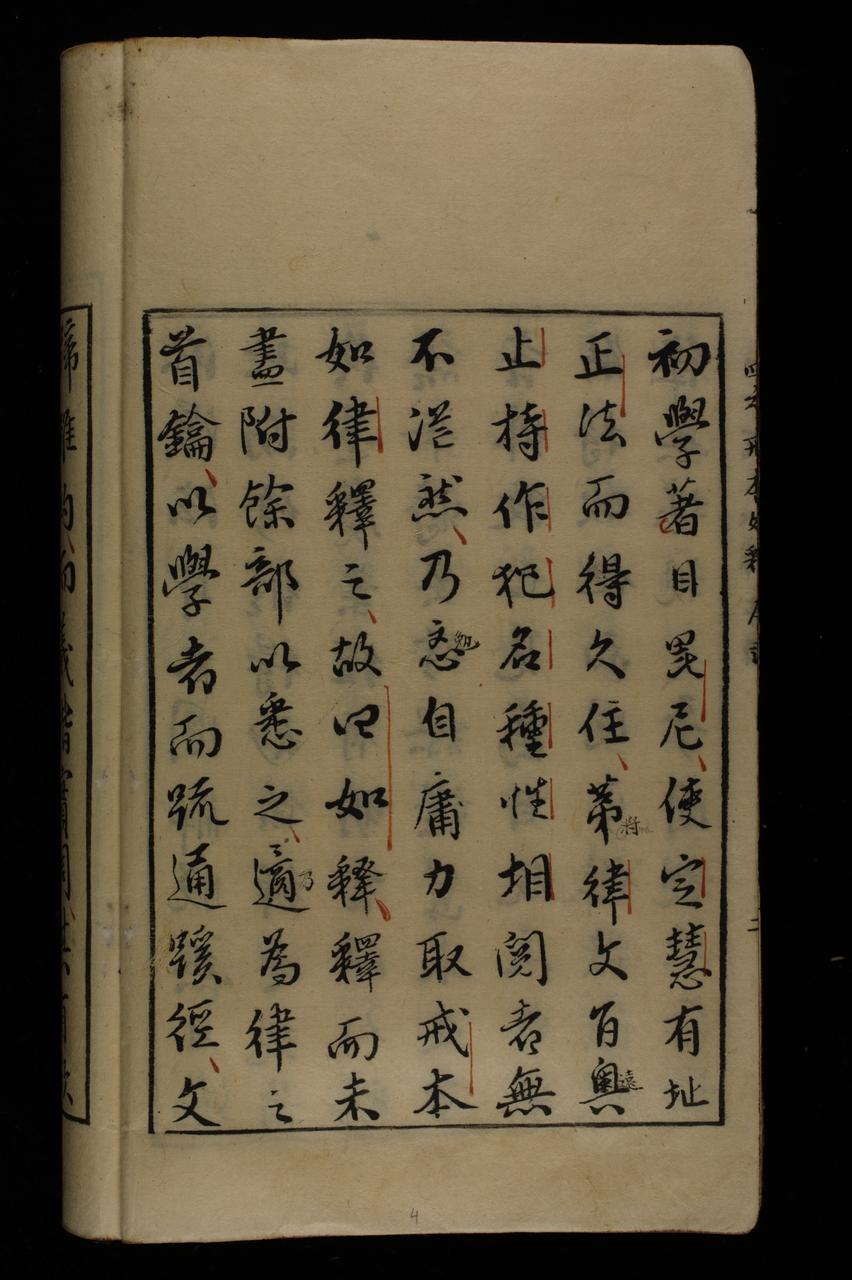 初學著目毘尼使定慧有址
正法而得久住第律文旨奧
止持作犯名種性相閱者無
不茫然乃忞自庸力取戒本
如律釋之故曰如释釋而未
盡附餘部以悉之適為律之
首鑰以學者而疏通蹊徑文
將
遠
乃
4